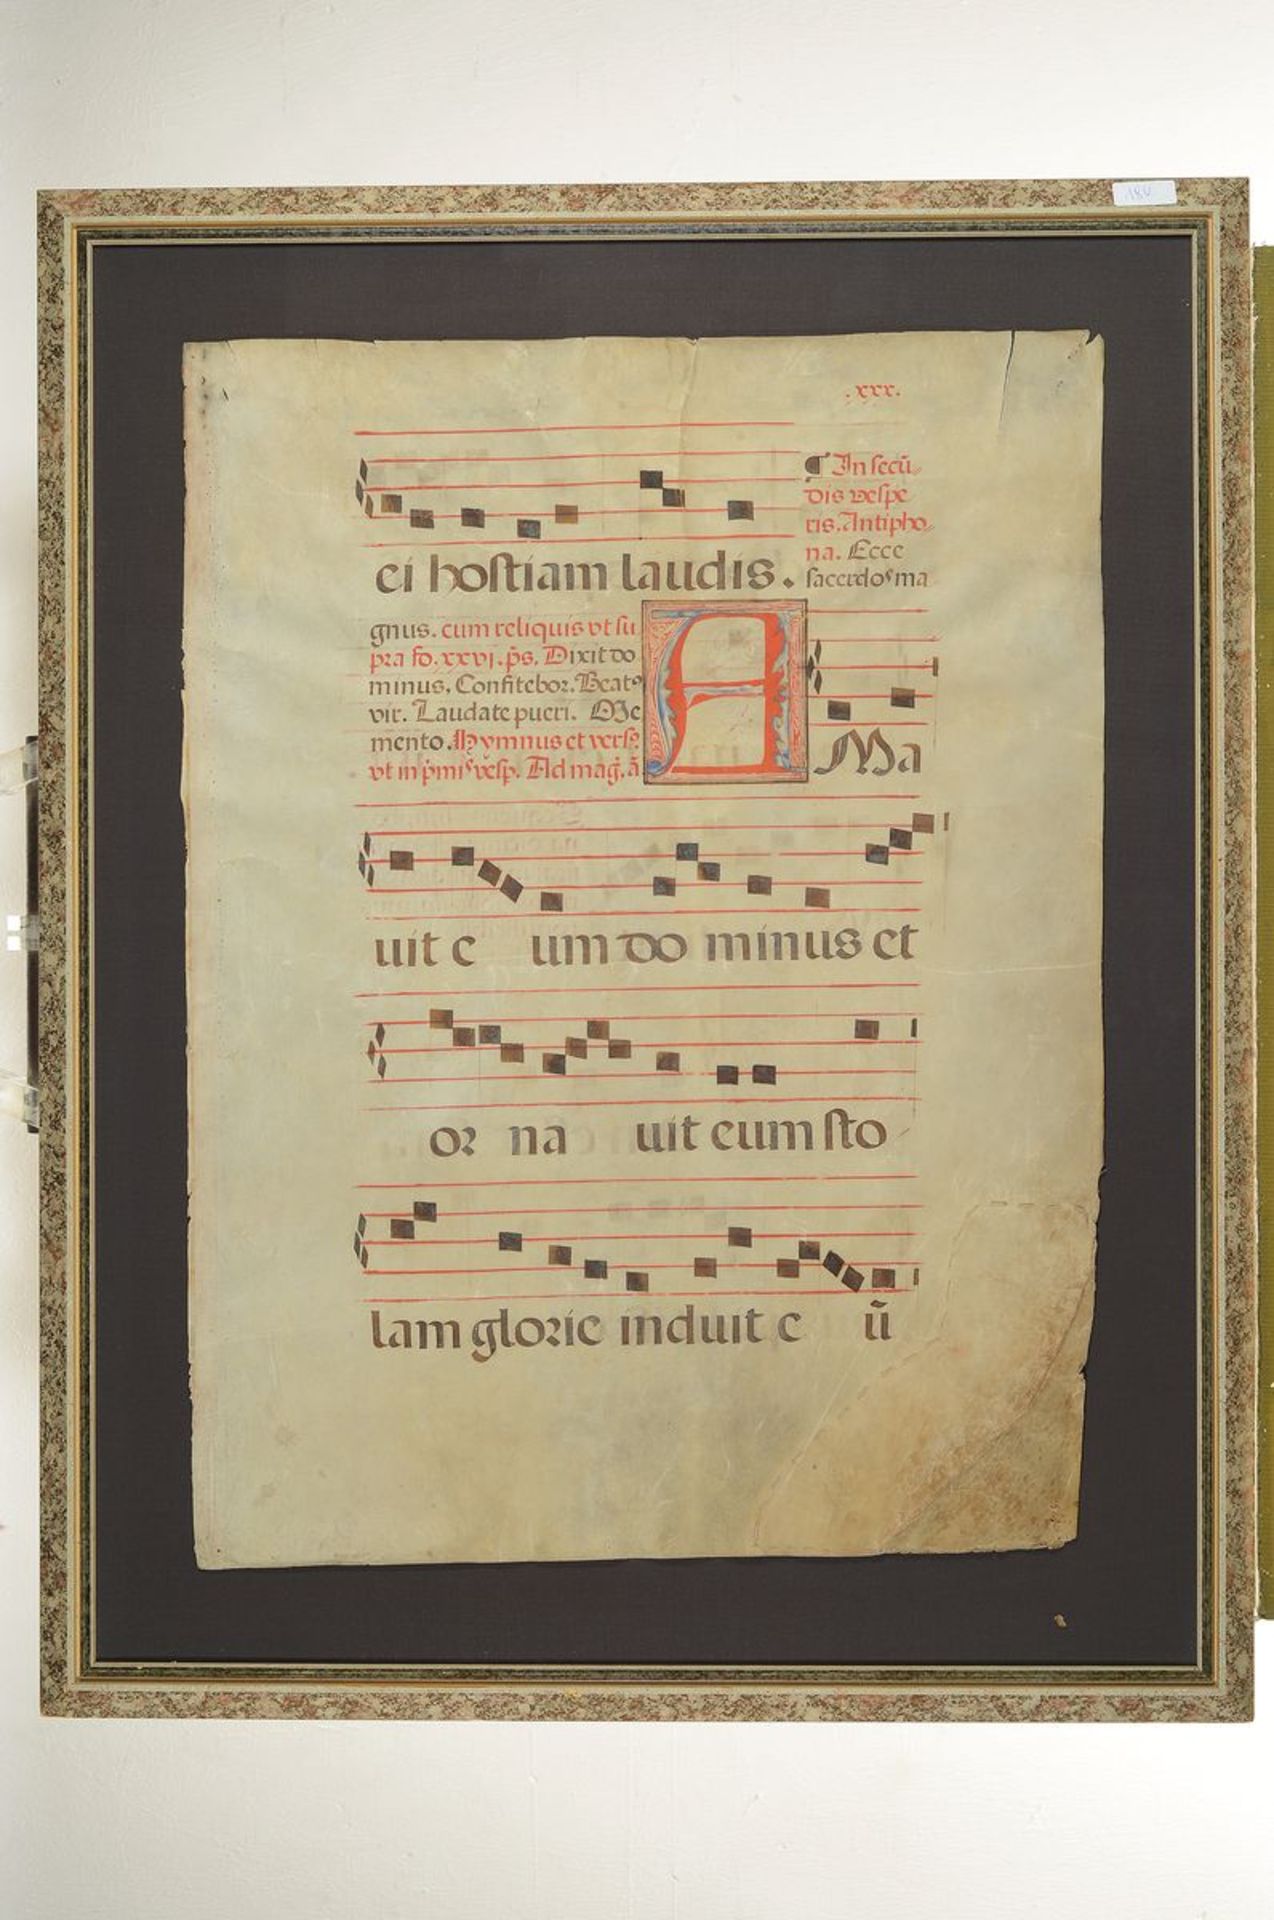 .xxx.
¶ In secũ
dis vespe
ris. Antipho
na. Ecce
sacerdos ma
ei hostiam laudis.
gnus. cum reliquis vt su
pra fo. xxvj. p̃s. Dixit do
minus. Confitebor. Beatꝰ
vir. Laudate pueri. Me
mento. Hymnus et vers.
vt in p̃mis vesp. Ad mag̃. ã.
A Ma
uit e um do minus et
or na uit eum sto
lam glorie induit e ũ